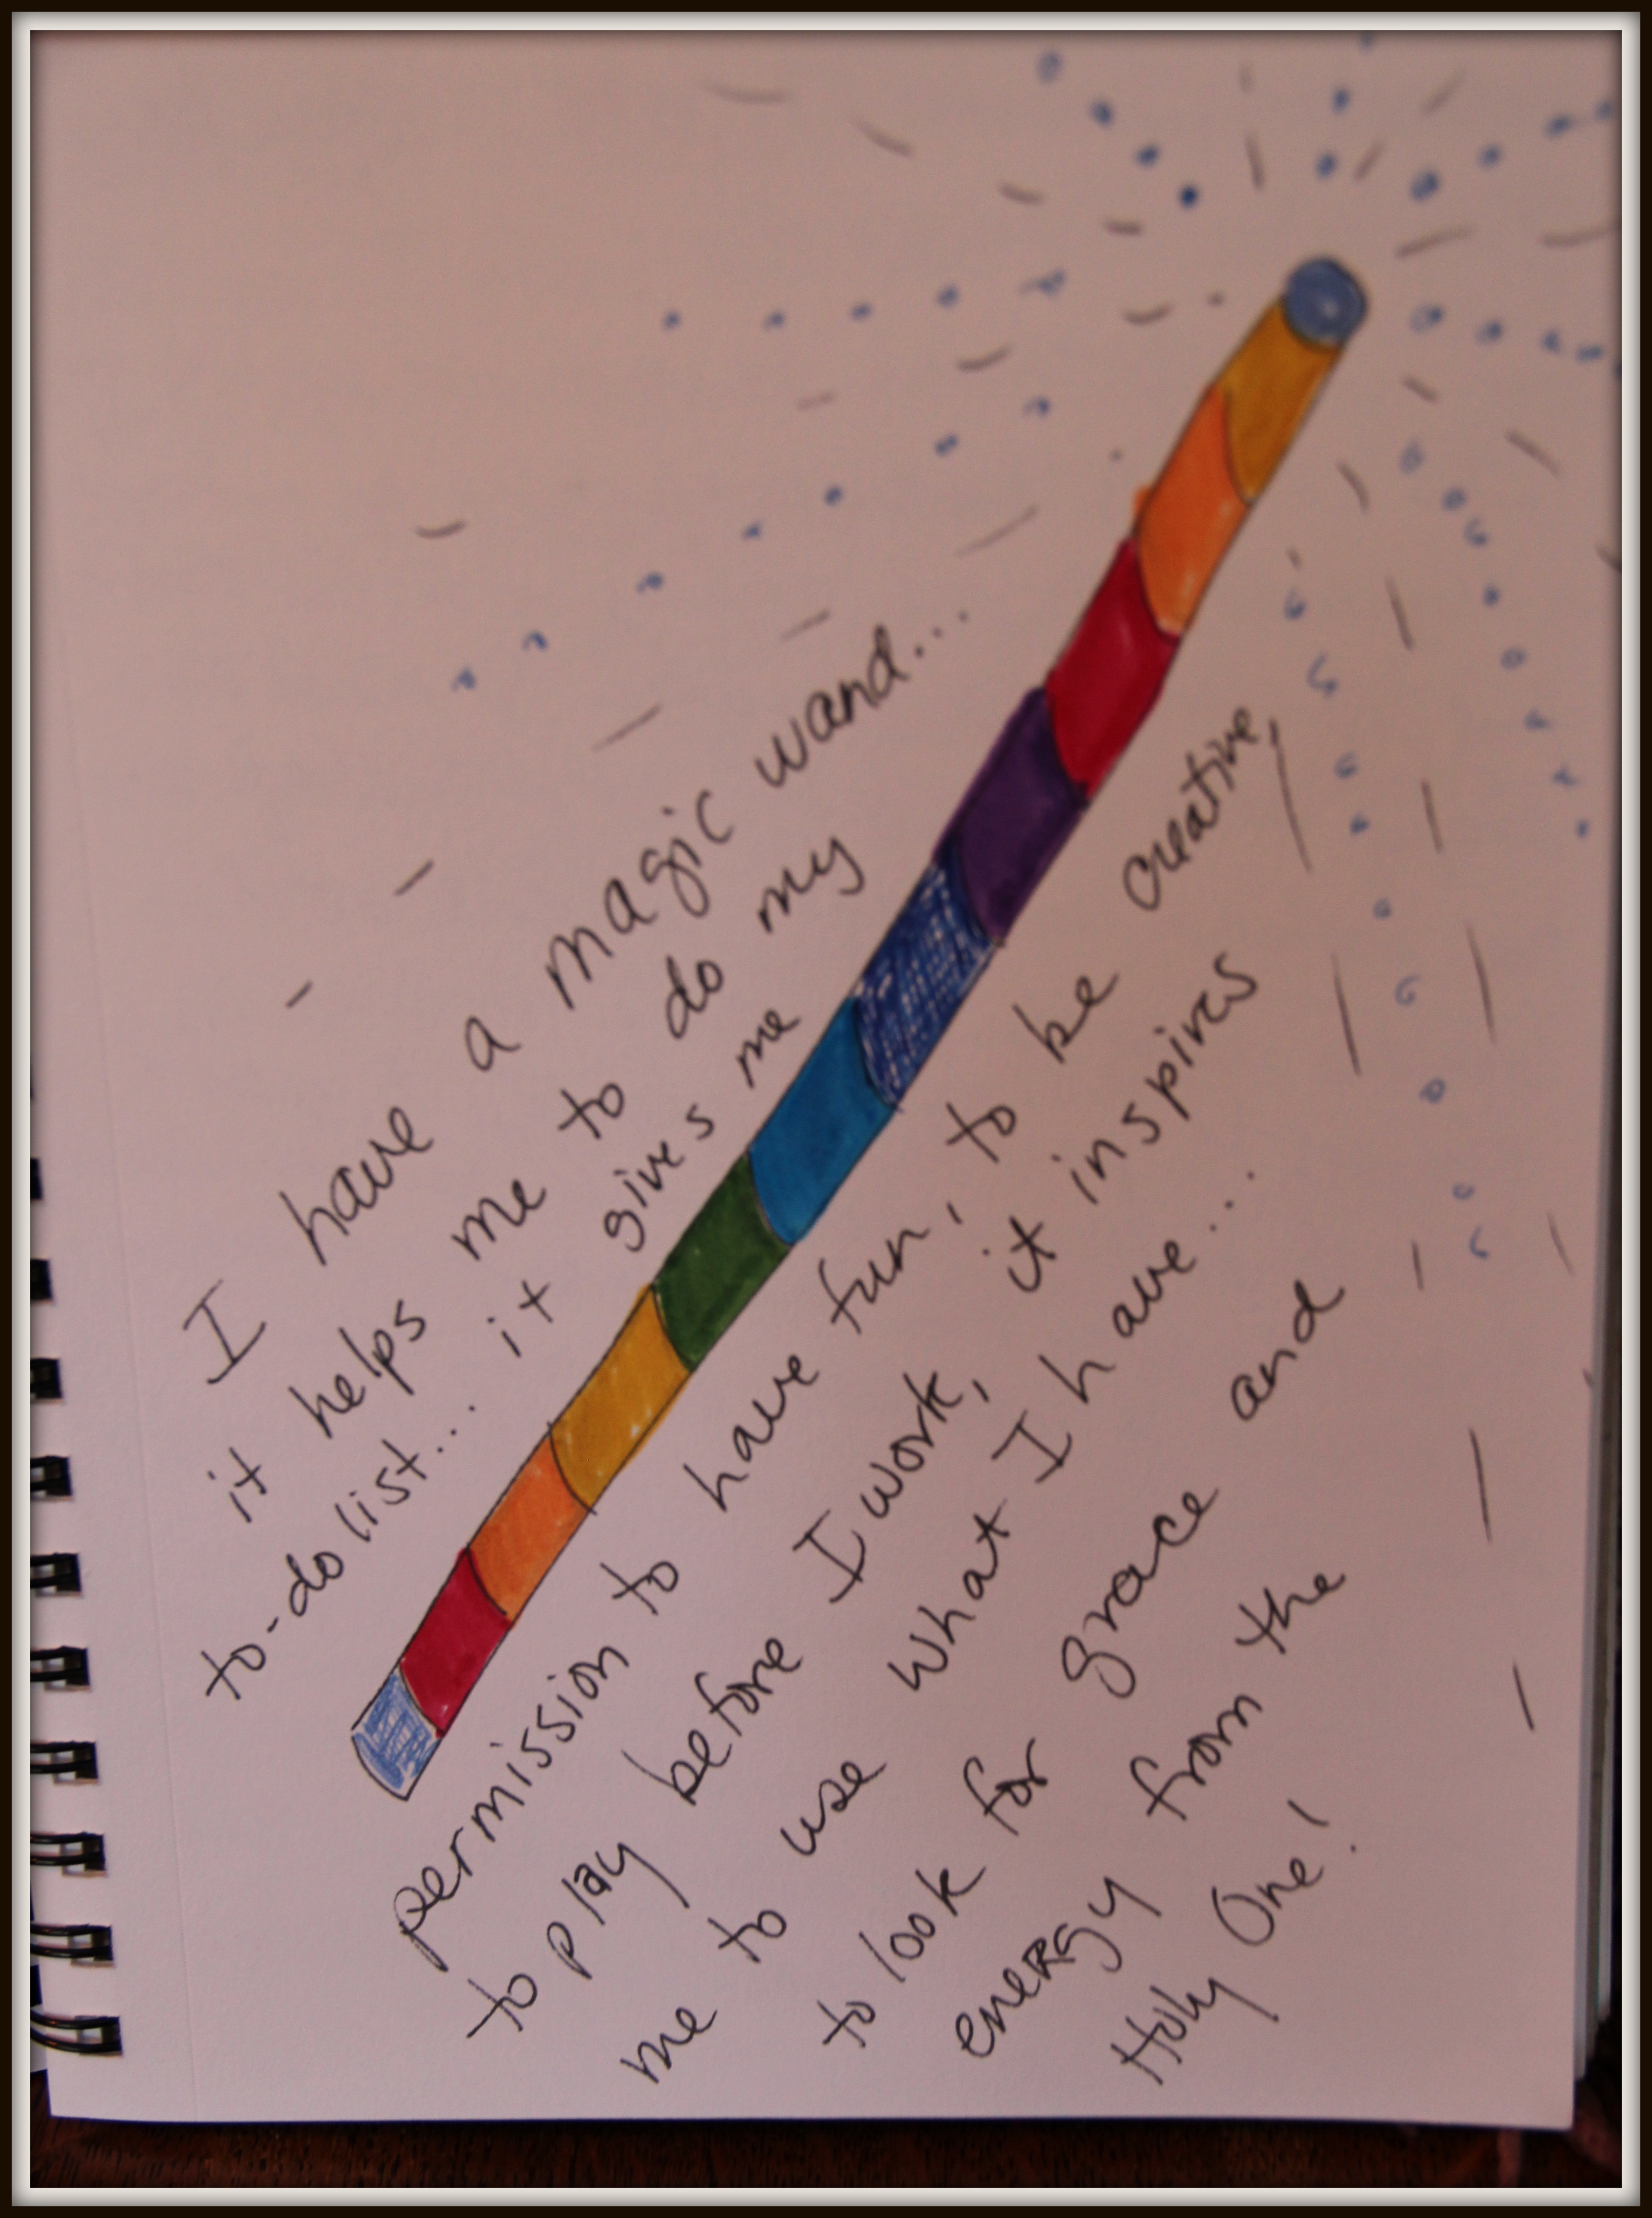 I have a magic wand...
it helps me to do my
to-do list... it gives me
permission to have fun, to be creative,
to play before I work, it inspires
me to use what I have...
to look for grace and
energy from the
Holy One!